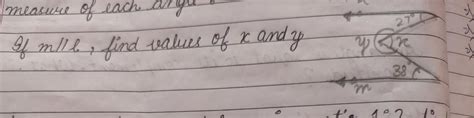 measure of each angle
If m//l, find values of x and y
27°
y x
38°
m